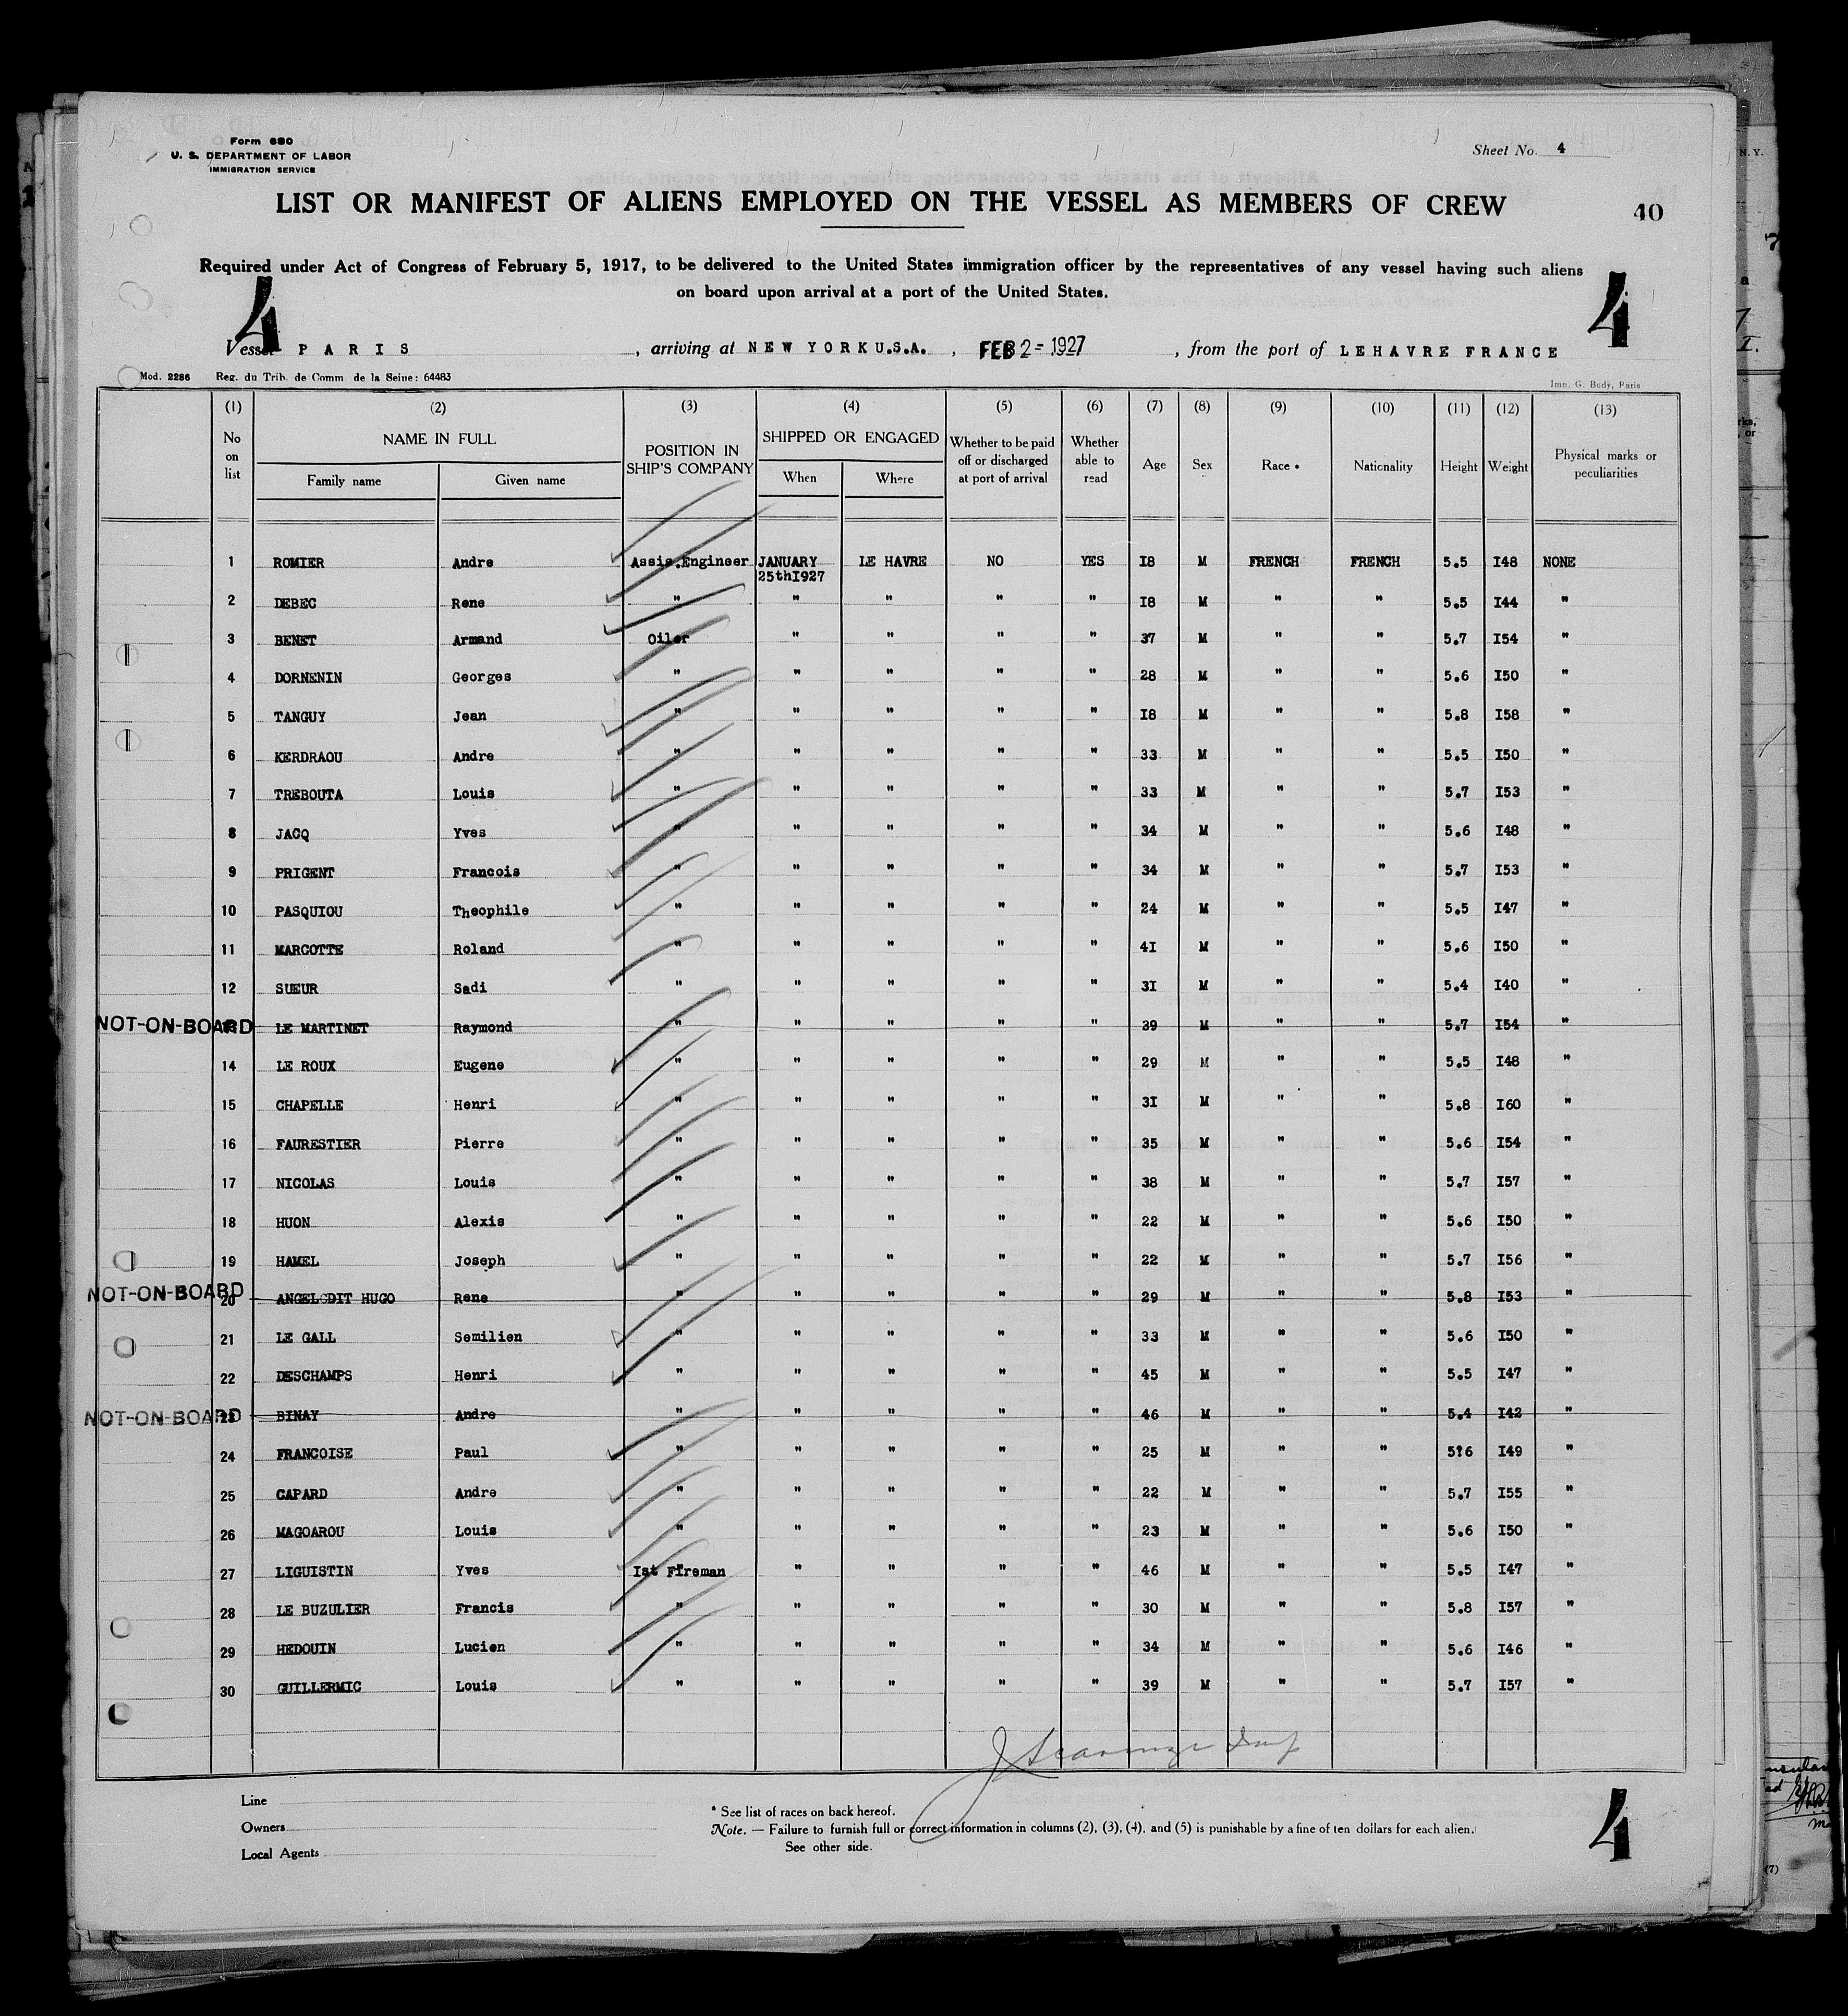 Form 680
U. S. DEPARTMENT OF LABOR
IMMIGRATION SERVICE
Sheet No. 4
LIST OR MANIFEST OF ALIENS EMPLOYED ON THE VESSEL AS MEMBERS OF CREW
40
Required under Act of Congress of February 5, 1917, to be delivered to the United States immigration officer by the representatives of any vessel having such aliens
on board upon arrival at a port of the United States.
4
4
Vessel PARIS, arriving at NEW YORK U.S.A., FEB 2 - 1927, from the port of LEHAVRE FRANCE
Mod. 2286 Reg. du Trib. de Comm. de la Seine: 64483 Imp. G. Budy, Paris
(1) (2) (3) (4) (5) (6) (7) (8) (9) (10) (11) (12) (13)
No on list NAME IN FULL Family name Given name POSITION IN SHIP'S COMPANY SHIPPED OR ENGAGED When Where Whether to be paid off or discharged at port of arrival Whether able to read Age Sex Race * Nationality Height Weight Physical marks or peculiarities
1 ROMIER Andre Assis.Engineer JANUARY 25thI927 LE HAVRE NO YES I8 M FRENCH FRENCH 5.5 I48 NONE
2 DEBEC Rene " " " " " I8 M " " 5.5 I44 "
3 BENET Armand Oiler " " " " 37 M " " 5.7 I54 "
4 DORNENIN Georges " " " " " 28 M " " 5.6 I50 "
5 TANGUY Jean " " " " " I8 M " " 5.8 I58 "
6 KERDRAOU Andre " " " " " 33 M " " 5.5 I50 "
7 TREBOUTA Louis " " " " " 33 M " " 5.7 I53 "
8 JACQ Yves " " " " " 34 M " " 5.6 I48 "
9 PRIGENT Francois " " " " " 34 M " " 5.7 I53 "
10 PASQUIOU Theophile " " " " " 24 M " " 5.5 I47 "
11 MARCOTTE Roland " " " " " 4I M " " 5.6 I50 "
12 SUEUR Sadi " " " " " 3I M " " 5.4 I40 "
NOT-ON-BOARD 13 LE MARTINET Raymond " " " " " 39 M " " 5.7 I54 "
14 LE ROUX Eugene " " " " " 29 M " " 5.5 I48 "
15 CHAPELLE Henri " " " " " 3I M " " 5.8 I60 "
16 FAURESTIER Pierre " " " " " 35 M " " 5.6 I54 "
17 NICOLAS Louis " " " " " 38 M " " 5.7 I57 "
18 HUON Alexis " " " " " 22 M " " 5.6 I50 "
19 HAMEL Joseph " " " " " 22 M " " 5.7 I56 "
NOT-ON-BOARD 20 ANGEL DIT HUGO Rene " " " " " 29 M " " 5.8 I53 "
21 LE GALL Semilien " " " " " 33 M " " 5.6 I50 "
22 DESCHAMPS Henri " " " " " 45 M " " 5.5 I47 "
NOT-ON-BOARD 23 BINAY Andre " " " " " 46 M " " 5.4 I42 "
24 FRANCOISE Paul " " " " " 25 M " " 5?6 I49 "
25 CAPARD Andre " " " " " 22 M " " 5.7 I55 "
26 MAGOAROU Louis " " " " " 23 M " " 5.6 I50 "
27 LIGUISTIN Yves Ist Fireman " " " " 46 M " " 5.5 I47 "
28 LE BUZULIER Francis " " " " " 30 M " " 5.8 I57 "
29 HEDOUIN Lucien " " " " " 34 M " " 5.6 I46 "
30 GUILLERMIC Louis " " " " " 39 M " " 5.7 I57 "
Line
Owners
Local Agents
* See list of races on back hereof.
Note. — Failure to furnish full or correct information in columns (2), (3), (4), and (5) is punishable by a fine of ten dollars for each alien.
See other side.
4